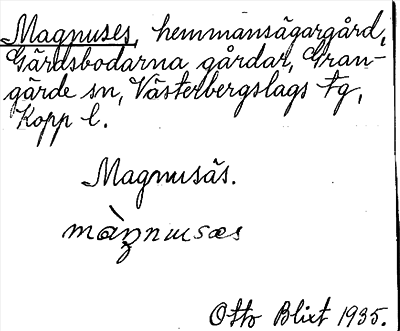 Magnuses, hemmansägargård,
Gärdsbodarna gårdar, Gran-
gärde sn, Västerbergslags fg,
Kopp l.
Magnusäs.
màŋnusæs
Otto Blixt 1935.